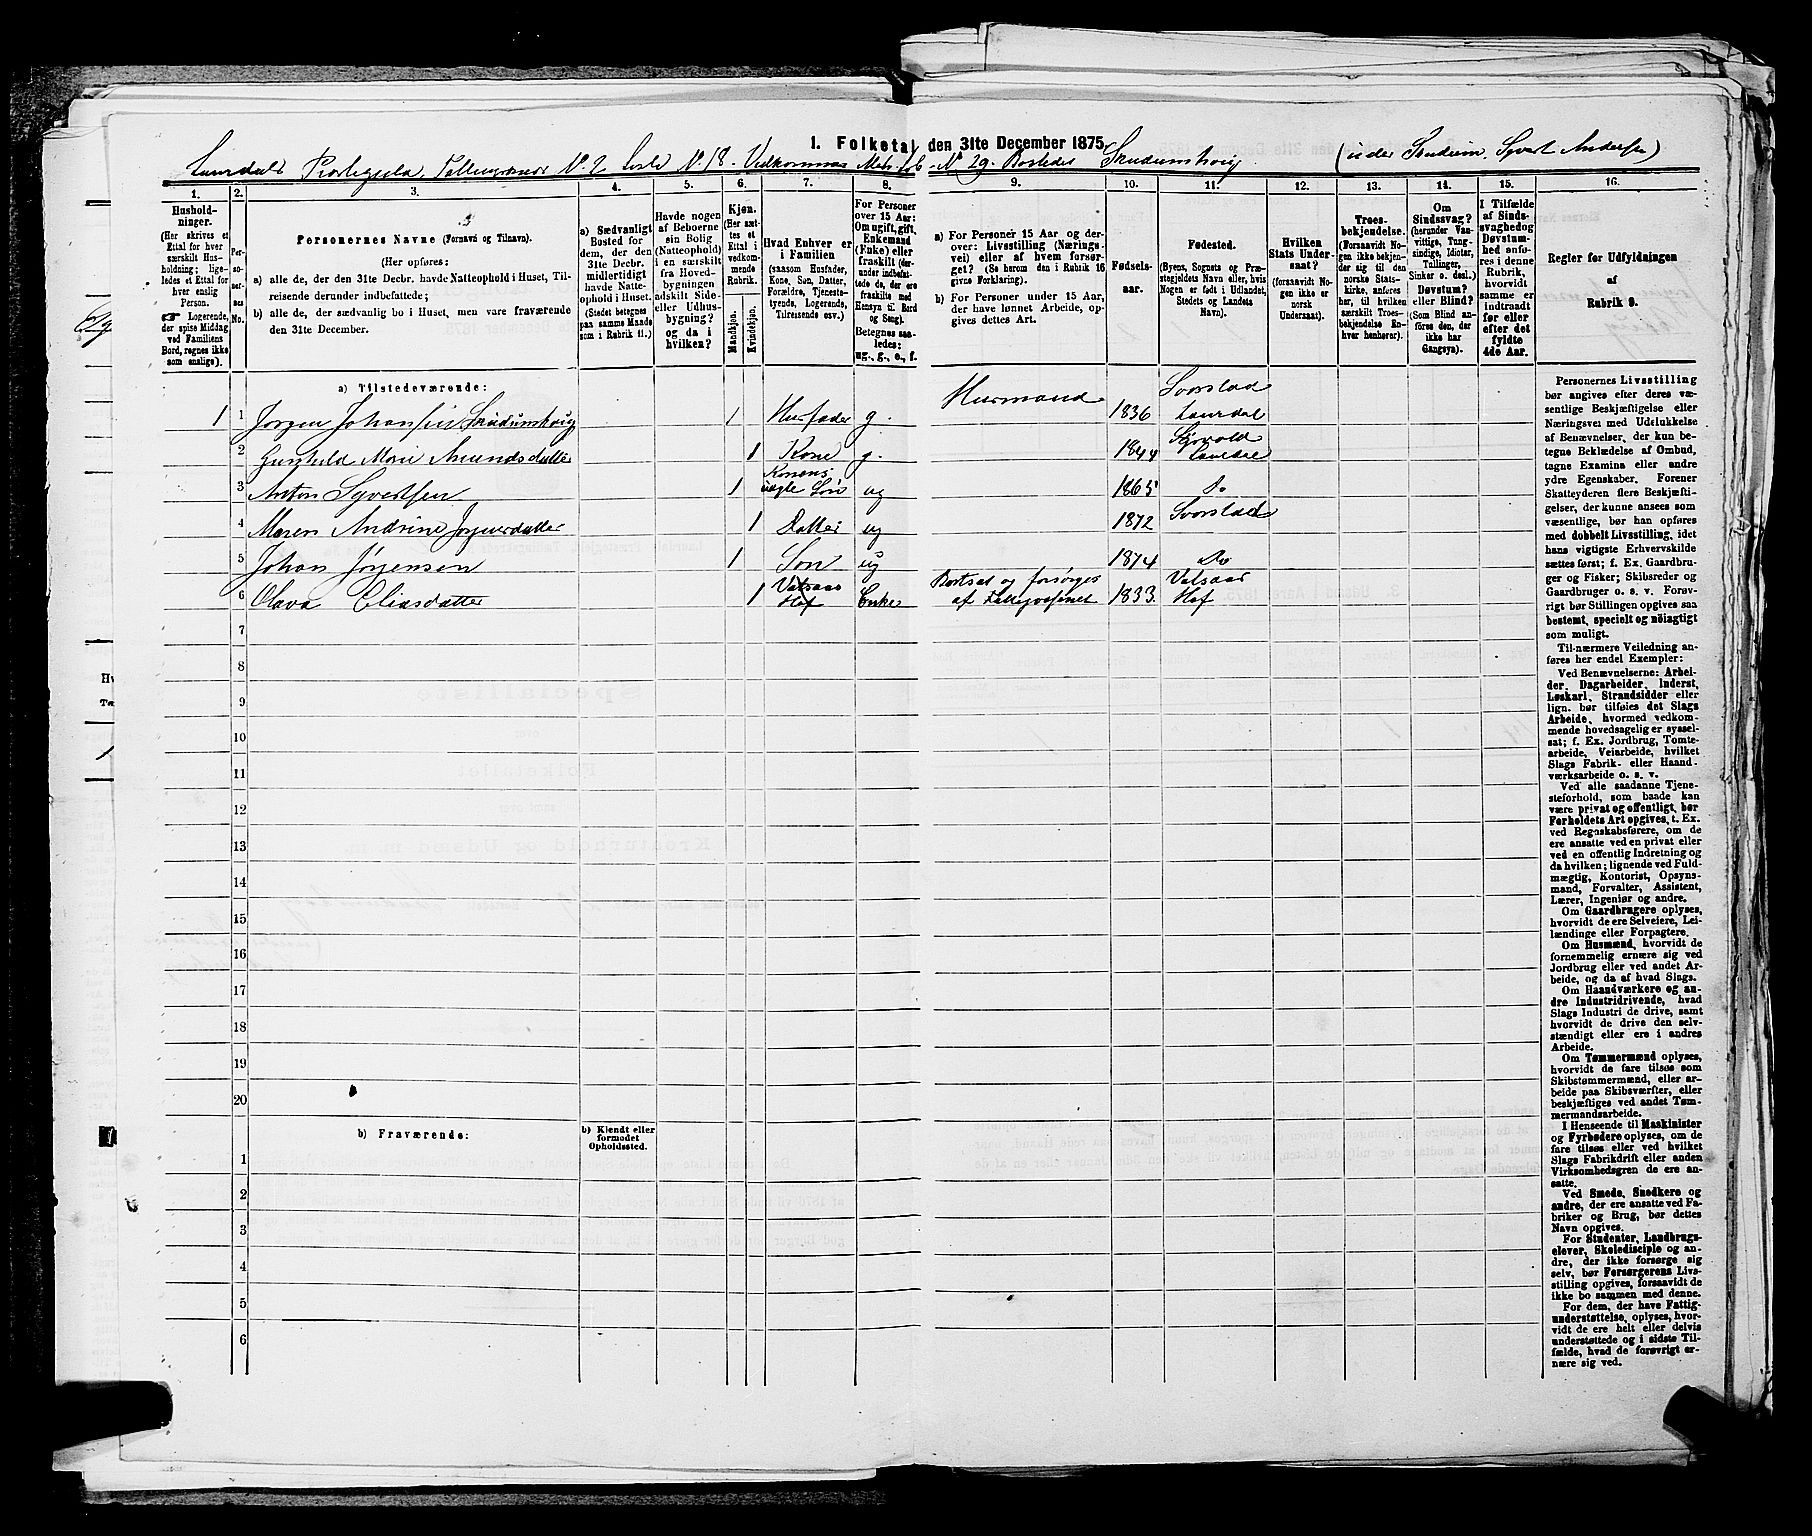 1. Folketal den 31te December 1875.
Laurdals Præstegjeld, Tællingskreds No. 2 Liste No. 18. Vedkommes Matr. Løb. No. 29. Bostedet Skudumshoug (under Sundeim, Syvert Andersen)
1. 2. 3. 4. 5. 6. 7. 8. 9. 10. 11. 12. 13. 14. 15. 16.
Husholdninger.
(Her skrives et
Ettal for hver
særskilt Husholdning;
ligeledes
et Ettal for
hver enslig
Person.
☞ Logerende,
der spise Middag
ved Familiens
Bord, regnes ikke
som enslige).
Personernes No.
Personernes Navne (Fornavn og Tilnavn).
(Her opføres:
a) alle de, der den 31te Decbr. havde Natteophold i Huset, Tilreisende derunder indbefattede;
b) alle de, der sædvanlig bo i Huset, men vare fraværende
den 31te December.
a) Sædvanligt
Bosted for
dem, der den
31te Decbr.
midlertidigt
havde Natteophold
i Huset.
(Stedet betegnes
paa samme Maade
som i Rubrik 11.)
Havde nogen
af Beboerne
sin Bolig
(Natteophold)
i en særskilt
fra Hovedbygningen
adskilt Side-
eller Udhusbygning?
og da i
hvilken?
Kjøn.
(Her sættes
et
Ettal i
vedkommende
Rubrik.
Mandkjøn.
Kvindekjøn.
Hvad Enhver er
i Familien
(saasom Husfader,
Kone, Søn, Datter,
Forældre, Tjenestetyende,
Logerende,
Tilreisende osv.)
For Personer
over 15 Aar:
Om ugift, gift,
Enkemand
(Enke) eller
fraskilt (derunder
indbefattede
de, der ere
fraskilte med
Hensyn til Bord
og Seng).
Betegnes saaledes:
ug., g., e., f.
a) For Personer 15 Aar og derover:
Livsstilling (Næringsvei)
eller af hvem forsørget?
(Se herom den i Rubrik 16
givne Forklaring).
b) For Personer under 15 Aar,
der have lønnet Arbeide, opgives
dettes Art.
Fødselsaar.
Fødested.
(Byens, Sognets og Præstegjeldets
Navn eller, hvis
Nogen er født i Udlandet,
Stedets og Landets
Navn).
Hvilken
Stats Undersaat?
(forsaavidt Nogen
ikke er
norsk
Undersaat).
Troesbekjendelse.
(Forsaavidt Nogen
ikke bekjender
sig til den
norske Statskirke,
anføres
her, til hvilken
særskilt Troesbekjendelse
Enhver
henhører).
Om
Sindssvag?
(herunder Vanvittige,
Tungsindige,
Idioter,
Tullinger,
Sinker o. desl.)
Døvstum?
eller Blind?
(Som Blind anføres
den, der
ikke har
Gangsyn).
I Tilfælde
af Sindssvaghed
og
Døvstumhed
anføres
i denne
Rubrik,
hvorvidt
samme er
indtraadt
før eller
efter det
fyldte
4de Aar.
Regler for Udfyldningen
af
Rubrik 9.
a) Tilstedeværende:
1 1 Jørgen Johansen Skudumshoug 1 Husfader g. Husmand 1836 Svarstad Laurdal
2 Gunhild Marie Amundsdatter 1 Kone g. 1844 Styrvold Laurdal
3 Anton Syvertsen 1 Konens uægte Søn ug 1865 Do
4 Maren Andrine Jørgensdatter 1 Datter ug 1872 Svarstad
5 Johan Jørgensen 1 Søn ug 1874 Do
6 Olava Eliasdatter 1 Valsaas Hof Enke Bortsat og forsørges af Fattigvæsenet 1833. Valsaas Hof
7
8
9
10
11
12
13
14
15
16
17
18
19
20
b) Fraværende:
b) Kjendt eller
formodet
Opholdssted.
1
2
3
4
5
6
Personernes Livsstilling
bør angives efter deres væsentlige
Beskjæftigelse eller
Næringsvei med Udelukkelse
af Benævnelser, der kun betegne
Beklædelse af Ombud,
tagne Examina eller andre
ydre Egenskaber. Forener
Skatteyderen flere Beskjæftigelser,
der kunne ansees som
væsentlige, bør han opføres
med dobbelt Livsstilling, idet
hans vigtigste Erhvervskilde
sættes først; f. Ex. Gaardbruger
og Fisker; Skibsreder og
Gaardbruger o. s. v. Forøvrigt
bør Stillingen opgives saa
bestemt, specielt og nöiagtigt
som muligt.
Til nærmere Veiledning anføres
her endel Exempler:
Ved Benævnelserne: Arbeider,
Dagarbeider, Inderst,
Løskarl, Strandsidder eller
lign. bør tilføies det Slags
Arbeide, hvormed vedkommende
hovedsagelig er sysselsat;
f. Ex. Jordbrug, Tomtearbeide,
Veiarbeide, hvilket
Slags Fabrik- eller Haandværksarbeide
o. s. v.
Ved alle saadanne Tjenesteforhold,
som baade kan
være privat og offentligt, bør
Forholdets Art opgives, t. Ex.
ved Regnskabsførere, om de
ere ansatte ved en privat eller
ved en offentlig Indretning og
da hvilken; lignende ved Fuldmægtig,
Kontorist, Opsynsmand,
Forvalter, Assistent,
Lærer, Ingeniør og andre.
Om Gaardbrugere oplyses,
hvorvidt de ere Selveiere, Leilændinge
eller Forpagtere.
Om Husmænd, hvorvidt de
fornemmelig ernære sig ved
Jordbrug eller ved andet Arbeide,
og da af hvad Slags.
Om Haandværkere og andre
Industridrivende, hvad
Slags Industri de drive, samt
hvorvidt de drive den selvstændigt
eller ere i andres
Arbeide.
Om Tømmermænd oplyses,
hvorvidt de fare tilsøs som
Skibstømmermænd, eller arbeide
paa Skibsværfter, eller
beskjæftiges ved andet Tømmermandsarbeide.
I Henseende til Maskinister
og Fyrbødere oplyses, om de
fare tilsøs eller ved hvilket
Slags Fabrikdrift eller anden
Virksomhedsgren de ere ansatte.
Ved Smede, Snedkere og
andre, der ere ansatte ved Fabriker
og Brug, bør dettes
Navn opgives.
For Studenter, Landbrugselever,
Skoledisciple og andre,
der ikke forsørge sig
selv, bør Forsørgerens Livsstilling
opgives, forsaavidt de
ikke bo sammen med denne.
For dem, der have Fattigunderstøttelse,
oplyses, hvorvidt
de ere helt eller delvis
understøttede og i sidste Tilfælde,
hvad de forøvrigt ernære
sig ved.